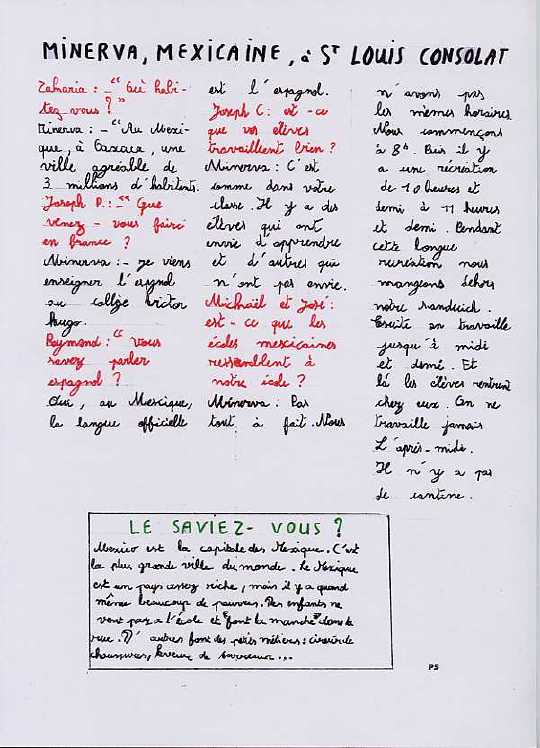 MINERVA, MEXICAINE, à ST LOUIS CONSOLAT
Zakaria : _"Où habi-
tez vous ?"
Minerva : _"Au Mexi-
que, à Oaxaca, une
ville agréable de
3 millions d'habitants.
Joseph P. : _"Que
venez - vous faire
en france ?
Minerva : _ Je viens
enseigner l'espagnol
au collège Victor
hugo.
Raymond : " vous
savez parler
espagnol ?
Oui, au Mexique,
la langue officielle
est l'espagnol.
Joseph C : est - ce
que vos élèves
travaillent bien ?
Minerva : C'est
comme dans votre
classe. Il y a des
élèves qui ont
envie d'apprendre
et d'autres que
n'ont pas envie.
Michaël et José :
est - ce que les
écoles mexicaines
ressemblent à
notre école ?
Minerva : Pas
tout à fait. Nous
n'avons pas
les mêmes horaires.
Nous commençons
à 8h. Puis il y
a une récréation
de 10 heures et
demi à 11 heures
et demi. Pendant
cette longue
récréation nous
mangeons dehors
notre sandwich.
Ensuite on travaille
jusqu'à midi
et demi. Et
là les élèves rentrent
chez eux. On ne
travaille jamais
L'après-midi.
Il n'y a pas
de cantine.
LE SAVIEZ- VOUS ?
Mexico est la capitale des Mexique. C'est
la plus grande ville du monde. Le Mexique
est un pays assez riche, mais il y a quand
même beaucoup de pauvres. Des enfants ne
vont pas a l'école et "font la manche" dans la
rue. D'autres font des petits métiers : cireur de
chaussures, laveur de carreaux...
PS